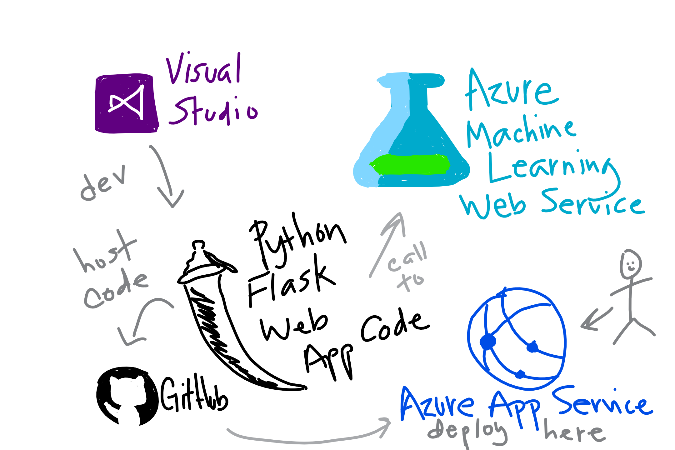 Visual
Studio
Azure
Machine
Learning
Web Service
dev
host
code
Python
Flask
Web
App Code
call
to
GitHub
Azure App Service
deploy here